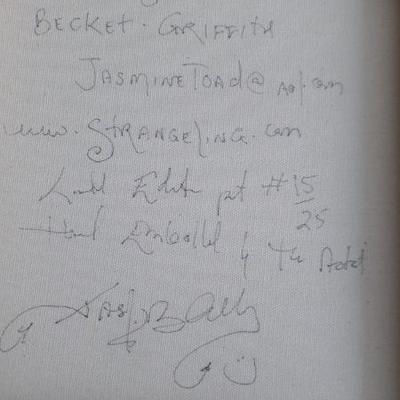 BECKET · GRIFFITH
JASMINETOAD@AOL.com
www.STRANGELING.com
Limited Edition print #15/25
Hand Embellished by the Artist